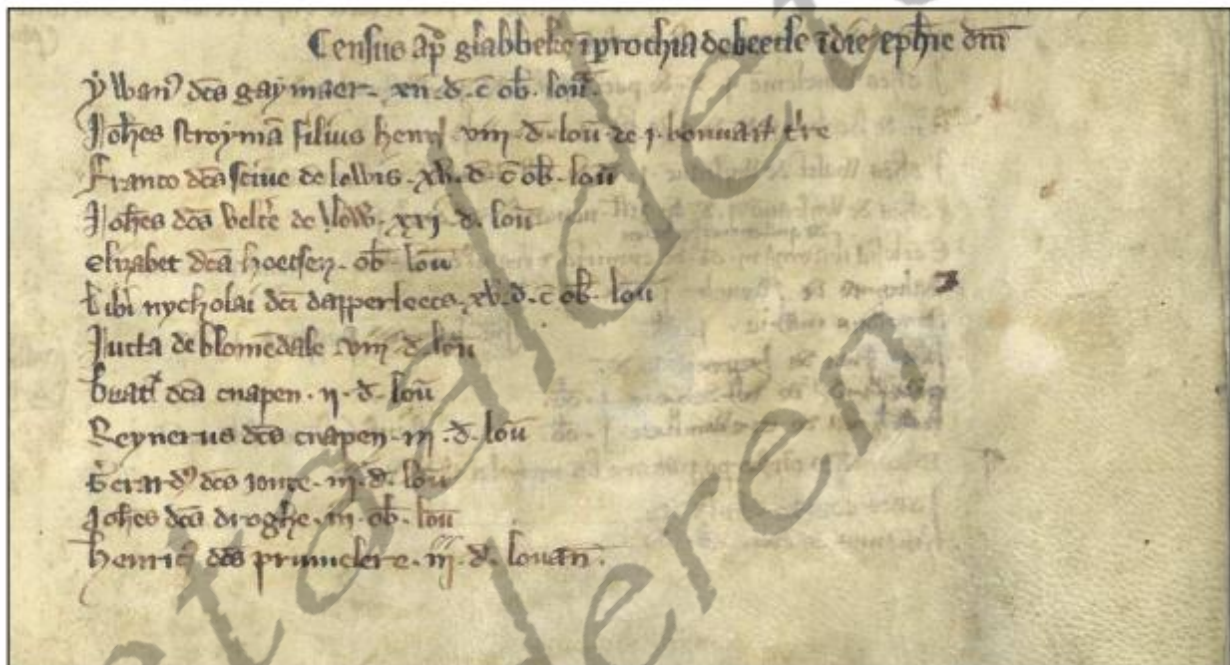 Census ap̄ glabbeke ī prochia de beerle ī die eph̄ie dn̄i
ywan⁹ dc̄s gaymaer · xii · đ · c̄ ob̄ · lou᷃
Joh̄es stroymā filius henr̄ viij · đ · lou᷃ de j · bonuar̄ t're
Franco dc̄s sciue de lewis · xv · đ · c̄ ob̄ · lou᷃
Joh̄es dc̄s de · xxj · đ · lou᷃
elizabet dc̄a hoetsen · ob̄ · lou᷃
libi nycholai dc̄i dapperleecs · xv · đ · c̄ ob̄ · lou᷃
Jutta de blomēdale viij · đ · lou᷃
dc̄a cnapen · ij · đ · lou᷃
Reynerus dc̄s cnapen · iij · đ · lou᷃
Gerard⁹ dc̄s jonte · iij · đ · lou᷃
Joh̄es dc̄s droghe · iij · ob̄ · lou᷃
henric⁹ dc̄s · iij · đ · louan̄ ·